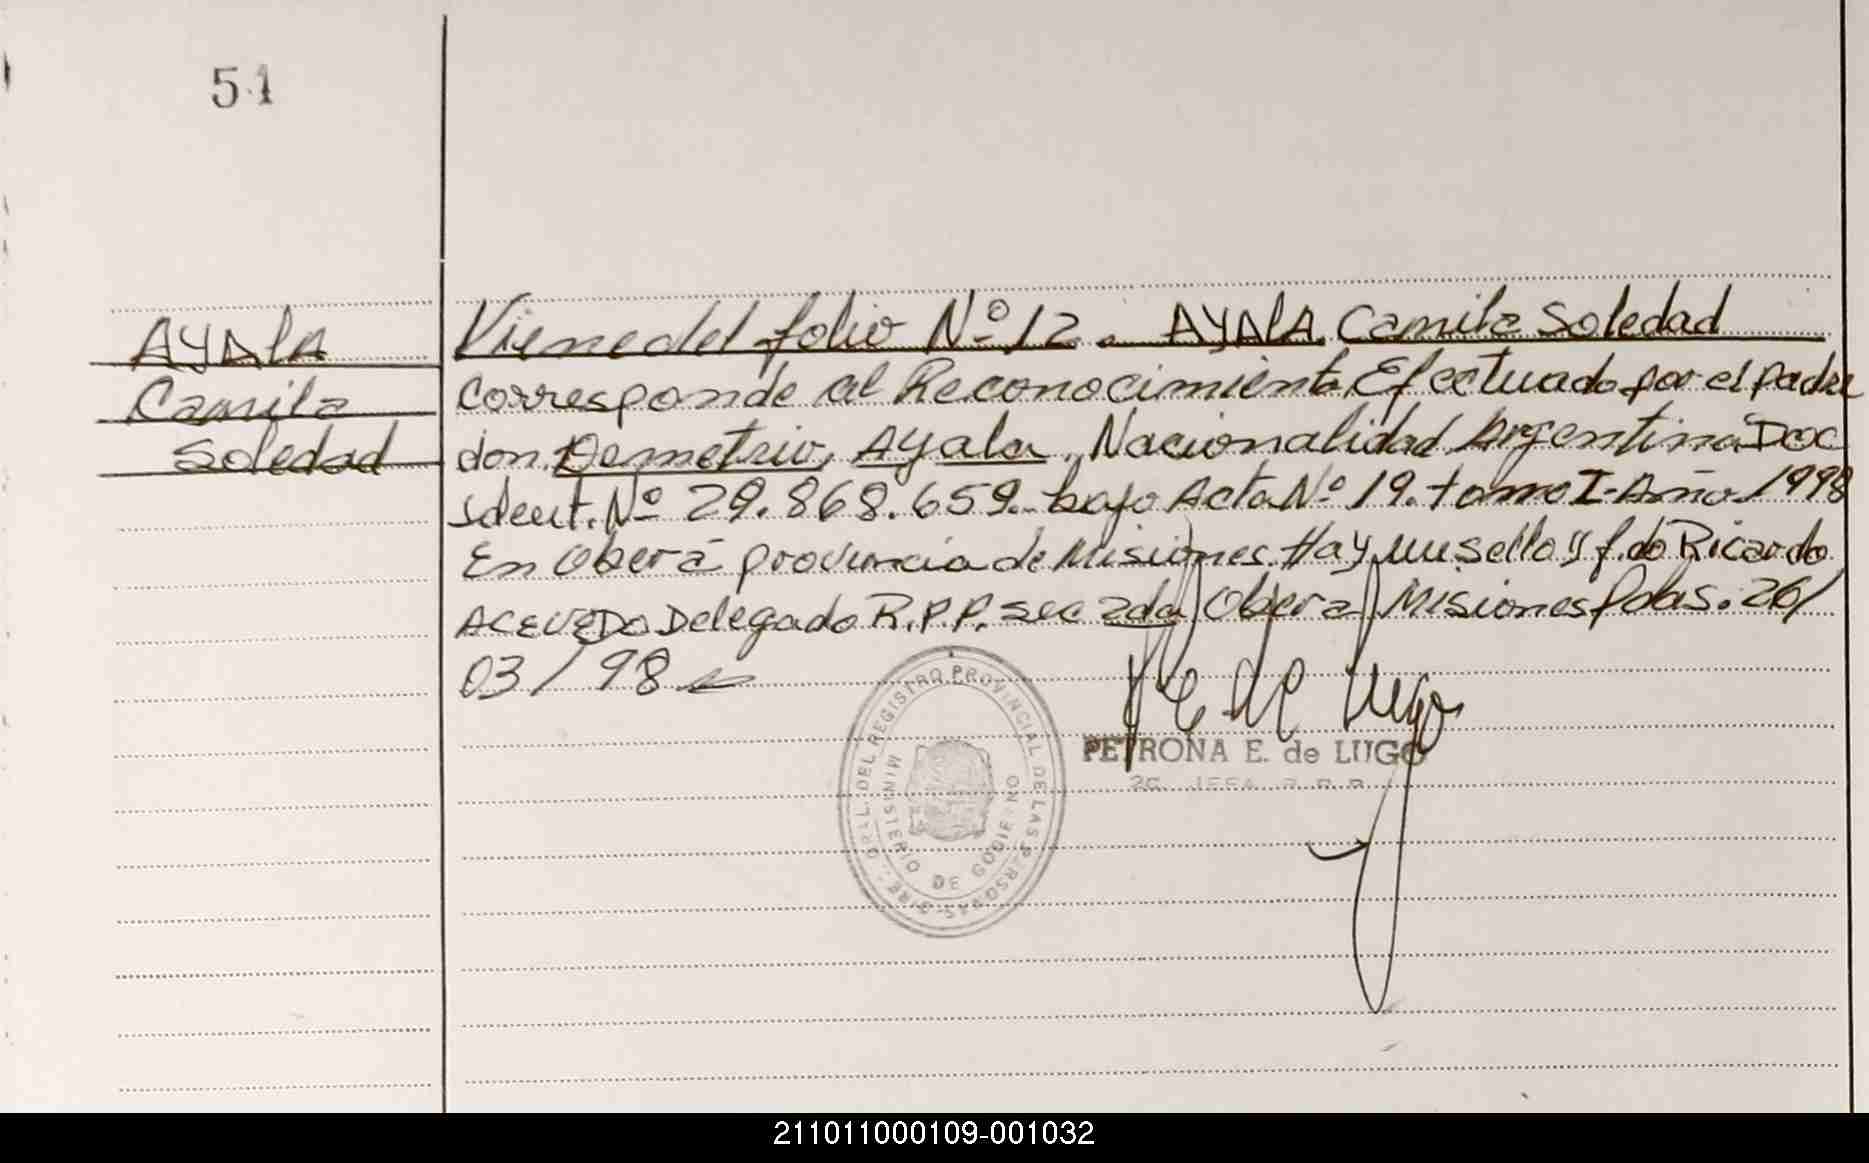 51
AYAlA
Camila
Soledad
Viene del folio Nº 12. AYAlA Camila Soledad
Corresponde al Reconocimiento Efectuado por el padre
don Demetrio, Ayala, Nacionalidad Argentina Doc
Ident. Nº 29.868.659. bajo Acta Nº 19. tomo I- Año 1998
En Oberá provincia de Misiones. Hay un sello y f.do Ricardo
ACEVEDO Delegado R.P.P. sec 2da Oberá Misiones Pdas. 26/
03/98
GRAL. DEL REGISTRO PROVINCIAL DE LAS PERSONAS - DIRE
MINISTERIO DE GOBIERNO
P E de Lugo
PETRONA E. de LUGO
JEFA R.P.P.
211011000109-001032